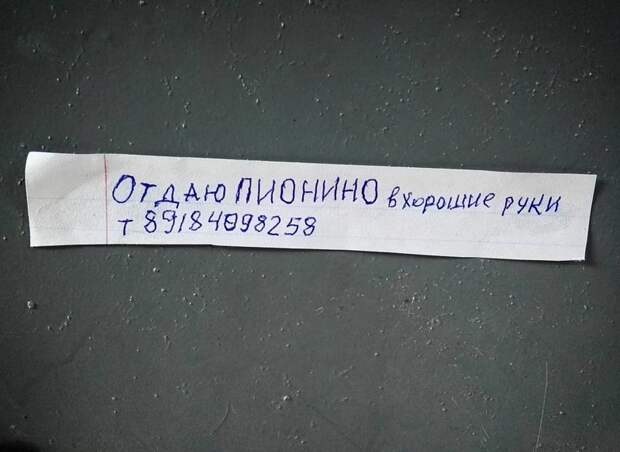 Отдаю ПИОНИНО в хорошие руки
т 89184098258